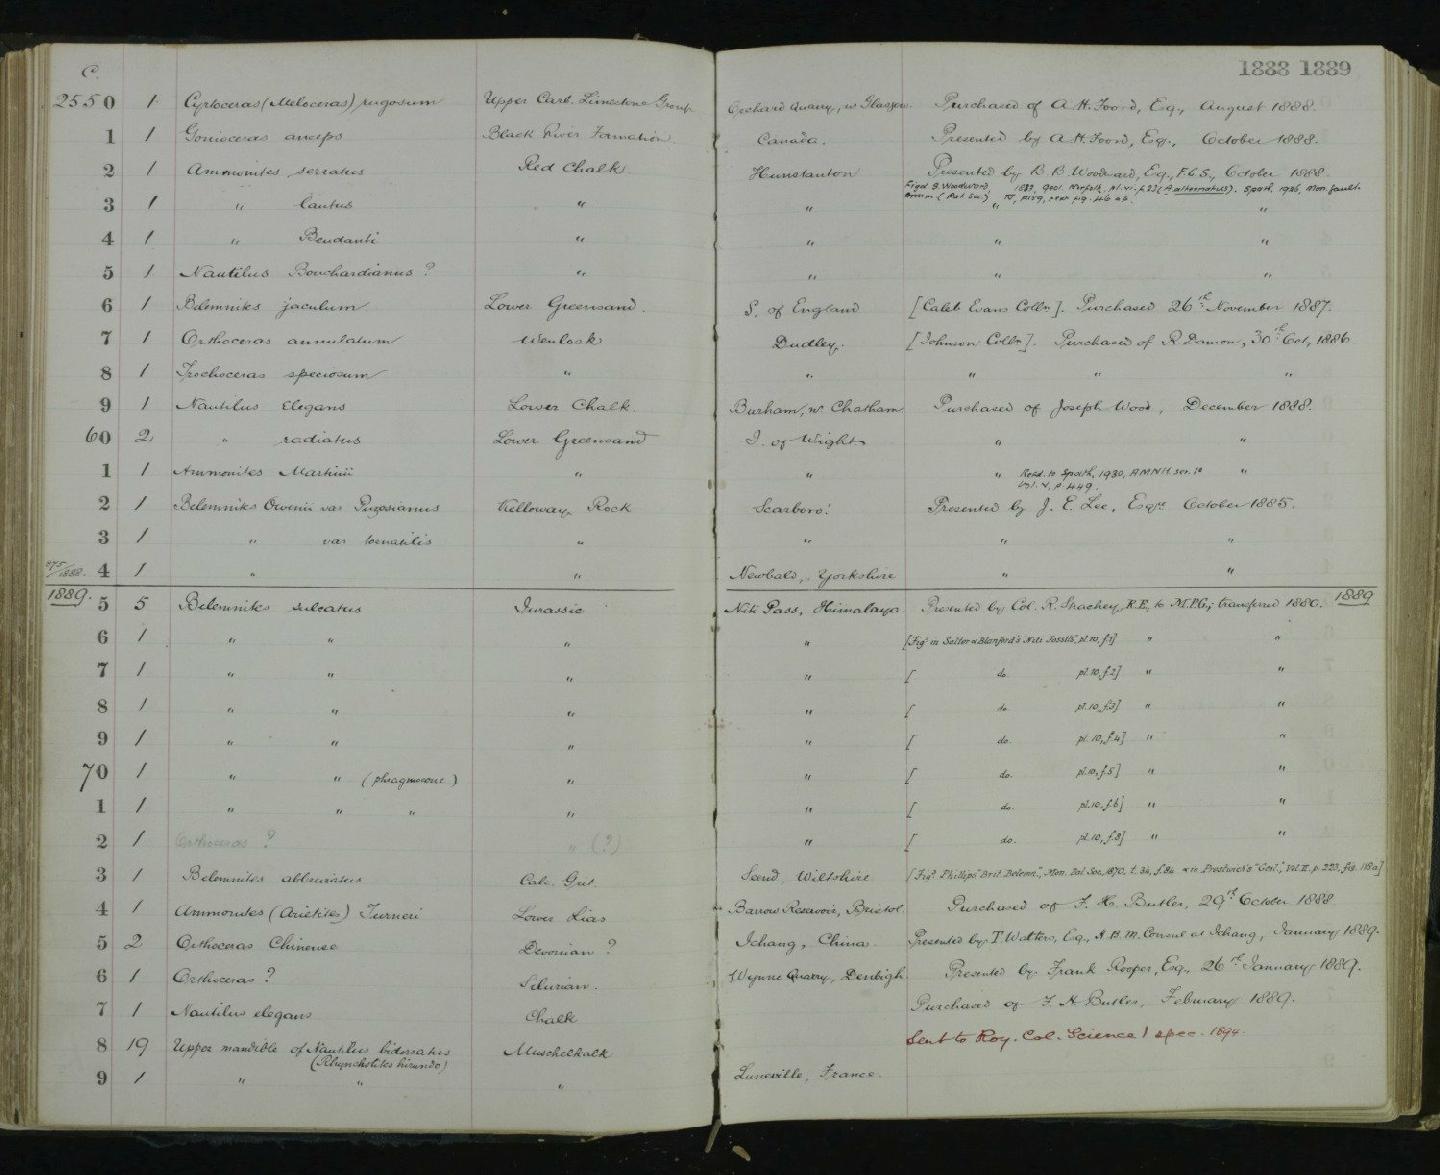 C.
1888 1889
2550 1 Cyrtoceras (Meloceras) rugosum Upper Carb. Limestone Group Orchard Quarry, nr Glasgow. Purchased of A. H. Foord, Esq., August 1888.
1 1 Gonioceras anceps Black River Formation. Canada. Presented by A. H. Foord, Esq., October 1888.
2 1 Ammonites serratus Red Chalk Hunstanton Presented by B. B. Woodward, Esq., F.G.S., October 1888.
Figd B. Woodward, Geol. Norfolk, Pl. vi. f.23 (A. alternatus). Spath, 1926, Mon. Gault
3 1 " lautus " " " "
4 1 " Beudanti " " " "
5 1 Nautilus Bouchardianus ? " " " "
6 1 Belemnites jaculum Lower Greensand. S. of England [Caleb Evans Colln]. Purchased 26th November 1887.
7 1 Orthoceras annulatum Wenlock Dudley. [Johnson Colln]. Purchased of R. Damon, 30th Oct, 1886
8 1 Trochoceras speciosum " " " " "
9 1 Nautilus elegans Lower Chalk. Burham, nr Chatham Purchased of Joseph Wood, December 1888.
60 2 " radiatus Lower Greensand I. of Wight " "
1 1 Ammonites Martinii " " " Refd. to Spath, 1930, AMNH. ser. 10 "
vol. v, p. 449.
2 1 Belemnites Owenii var Puzosianus Kelloway Rock Scarboro'. Presented by J. E. Lee, Esqre October 1885.
3 1 " var tornatilis " " " "
4 1 " " Newbald, Yorkshire " "
1889.
5 5 Belemnites sulcatus Jurassic Niti Pass, Himalaya Presented by Col. R. Strachey, R.E., to M.P.G.; transferred 1880. 1889
6 1 " " " " [Figd in Salter & Blanford's Niti Fossils, pl. 10, f.1] " "
7 1 " " " " [ do. pl. 10, f.2] " "
8 1 " " " " [ do. pl. 10, f.3] " "
9 1 " " " " [ do. pl. 10, f.4] " "
70 1 " " (phragmocone) " " [ do. pl. 10, f.5] " "
1 1 " " " " " [ do. pl. 10, f.6] " "
2 1 Orthoceras ? " (?) " [ do. pl. 10, f.8] " "
3 1 Belemnites Calc. Grit. Seend, Wiltshire [Figd Phillips' Brit. Belemn., Mon. Pal. Soc. 1870, t. 36, f. 86 & in Prestwich's "Geol.", Vol. II. p. 223, fig. 118a]
4 1 Ammonites (Arietites) Turneri Lower Lias Barrow Reservoir, Bristol. Purchased of F. H. Butler, 29th October 1888
5 2 Orthoceras Chinense Devonian ? Ichang, China Presented by T. Watters, Esq., H.B.M. Consul at Ichang, January 1889.
6 1 Orthoceras ? Silurian. Wynne Quarry, Denbigh Presented by Frank Rooper, Esq., 26th January 1889.
7 1 Nautilus elegans Chalk Purchased of F. H. Butler, February 1889.
8 19 Upper mandible of Nautilus bidorsatus Muschelkalk Sent to Roy. Col. Science 1 spec. 1894.
(Rhyncholites hirundo)
9 1 " " " Luneville, France.